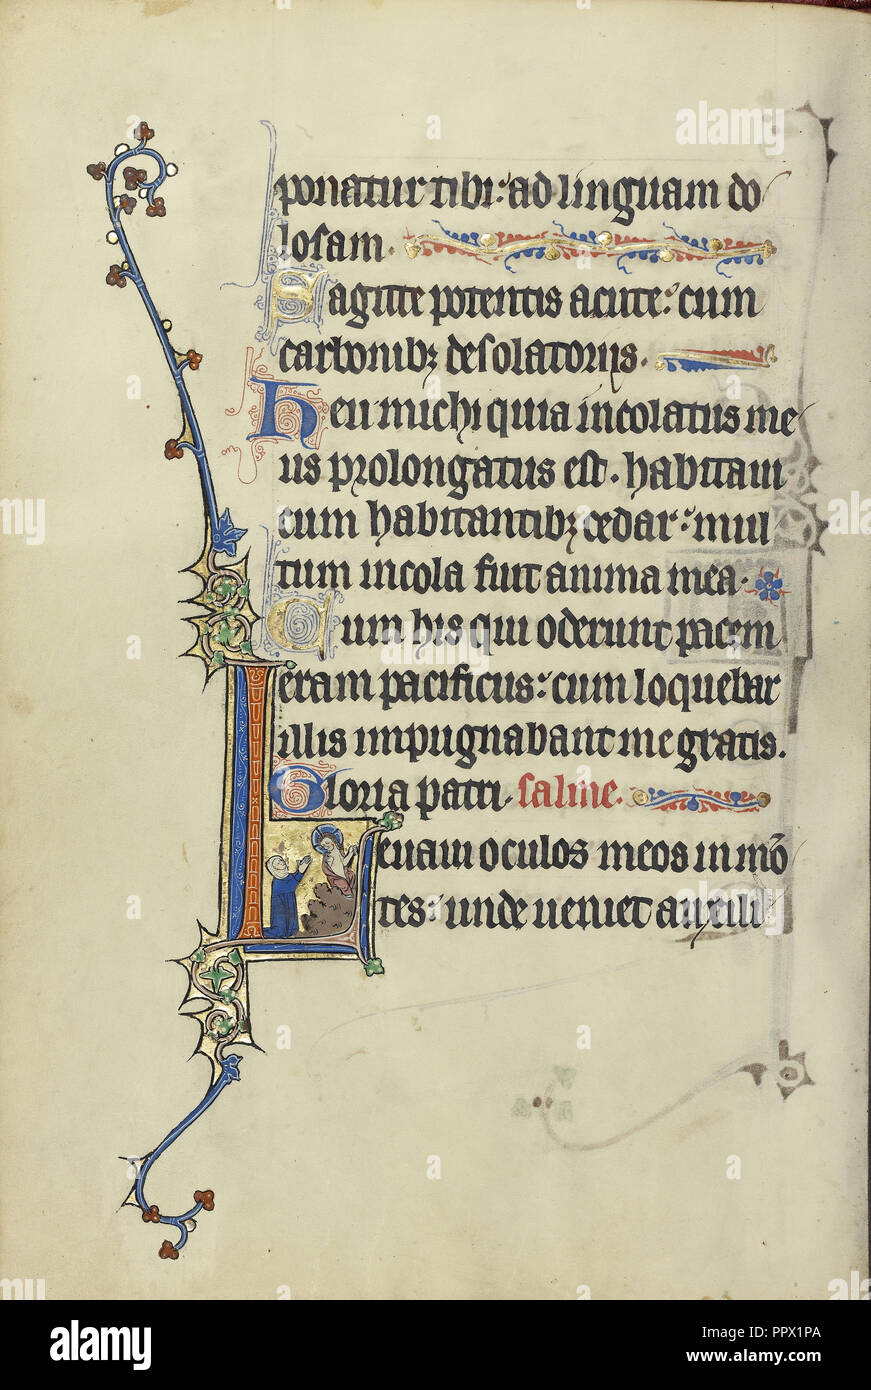 ponatur tibi: ad linguam do
losam.
Sagitte potentis acute: cum
carbonibꝫ desolatoriis.
Heu michi quia incolatus me
us prolongatus est. habitaui
cum habitantibꝫ cedar: mul
tum incola fuit anima mea.
Cum his qui oderunt pacem
eram pacificus: cum loquebar
illis impugnabant me gratis.
Gloria patri. salme.
Leuaui oculos meos in mõ
tes: unde ueniet auxili
alamy
a
alamy stock photo
PPX1PA
www.alamy.com